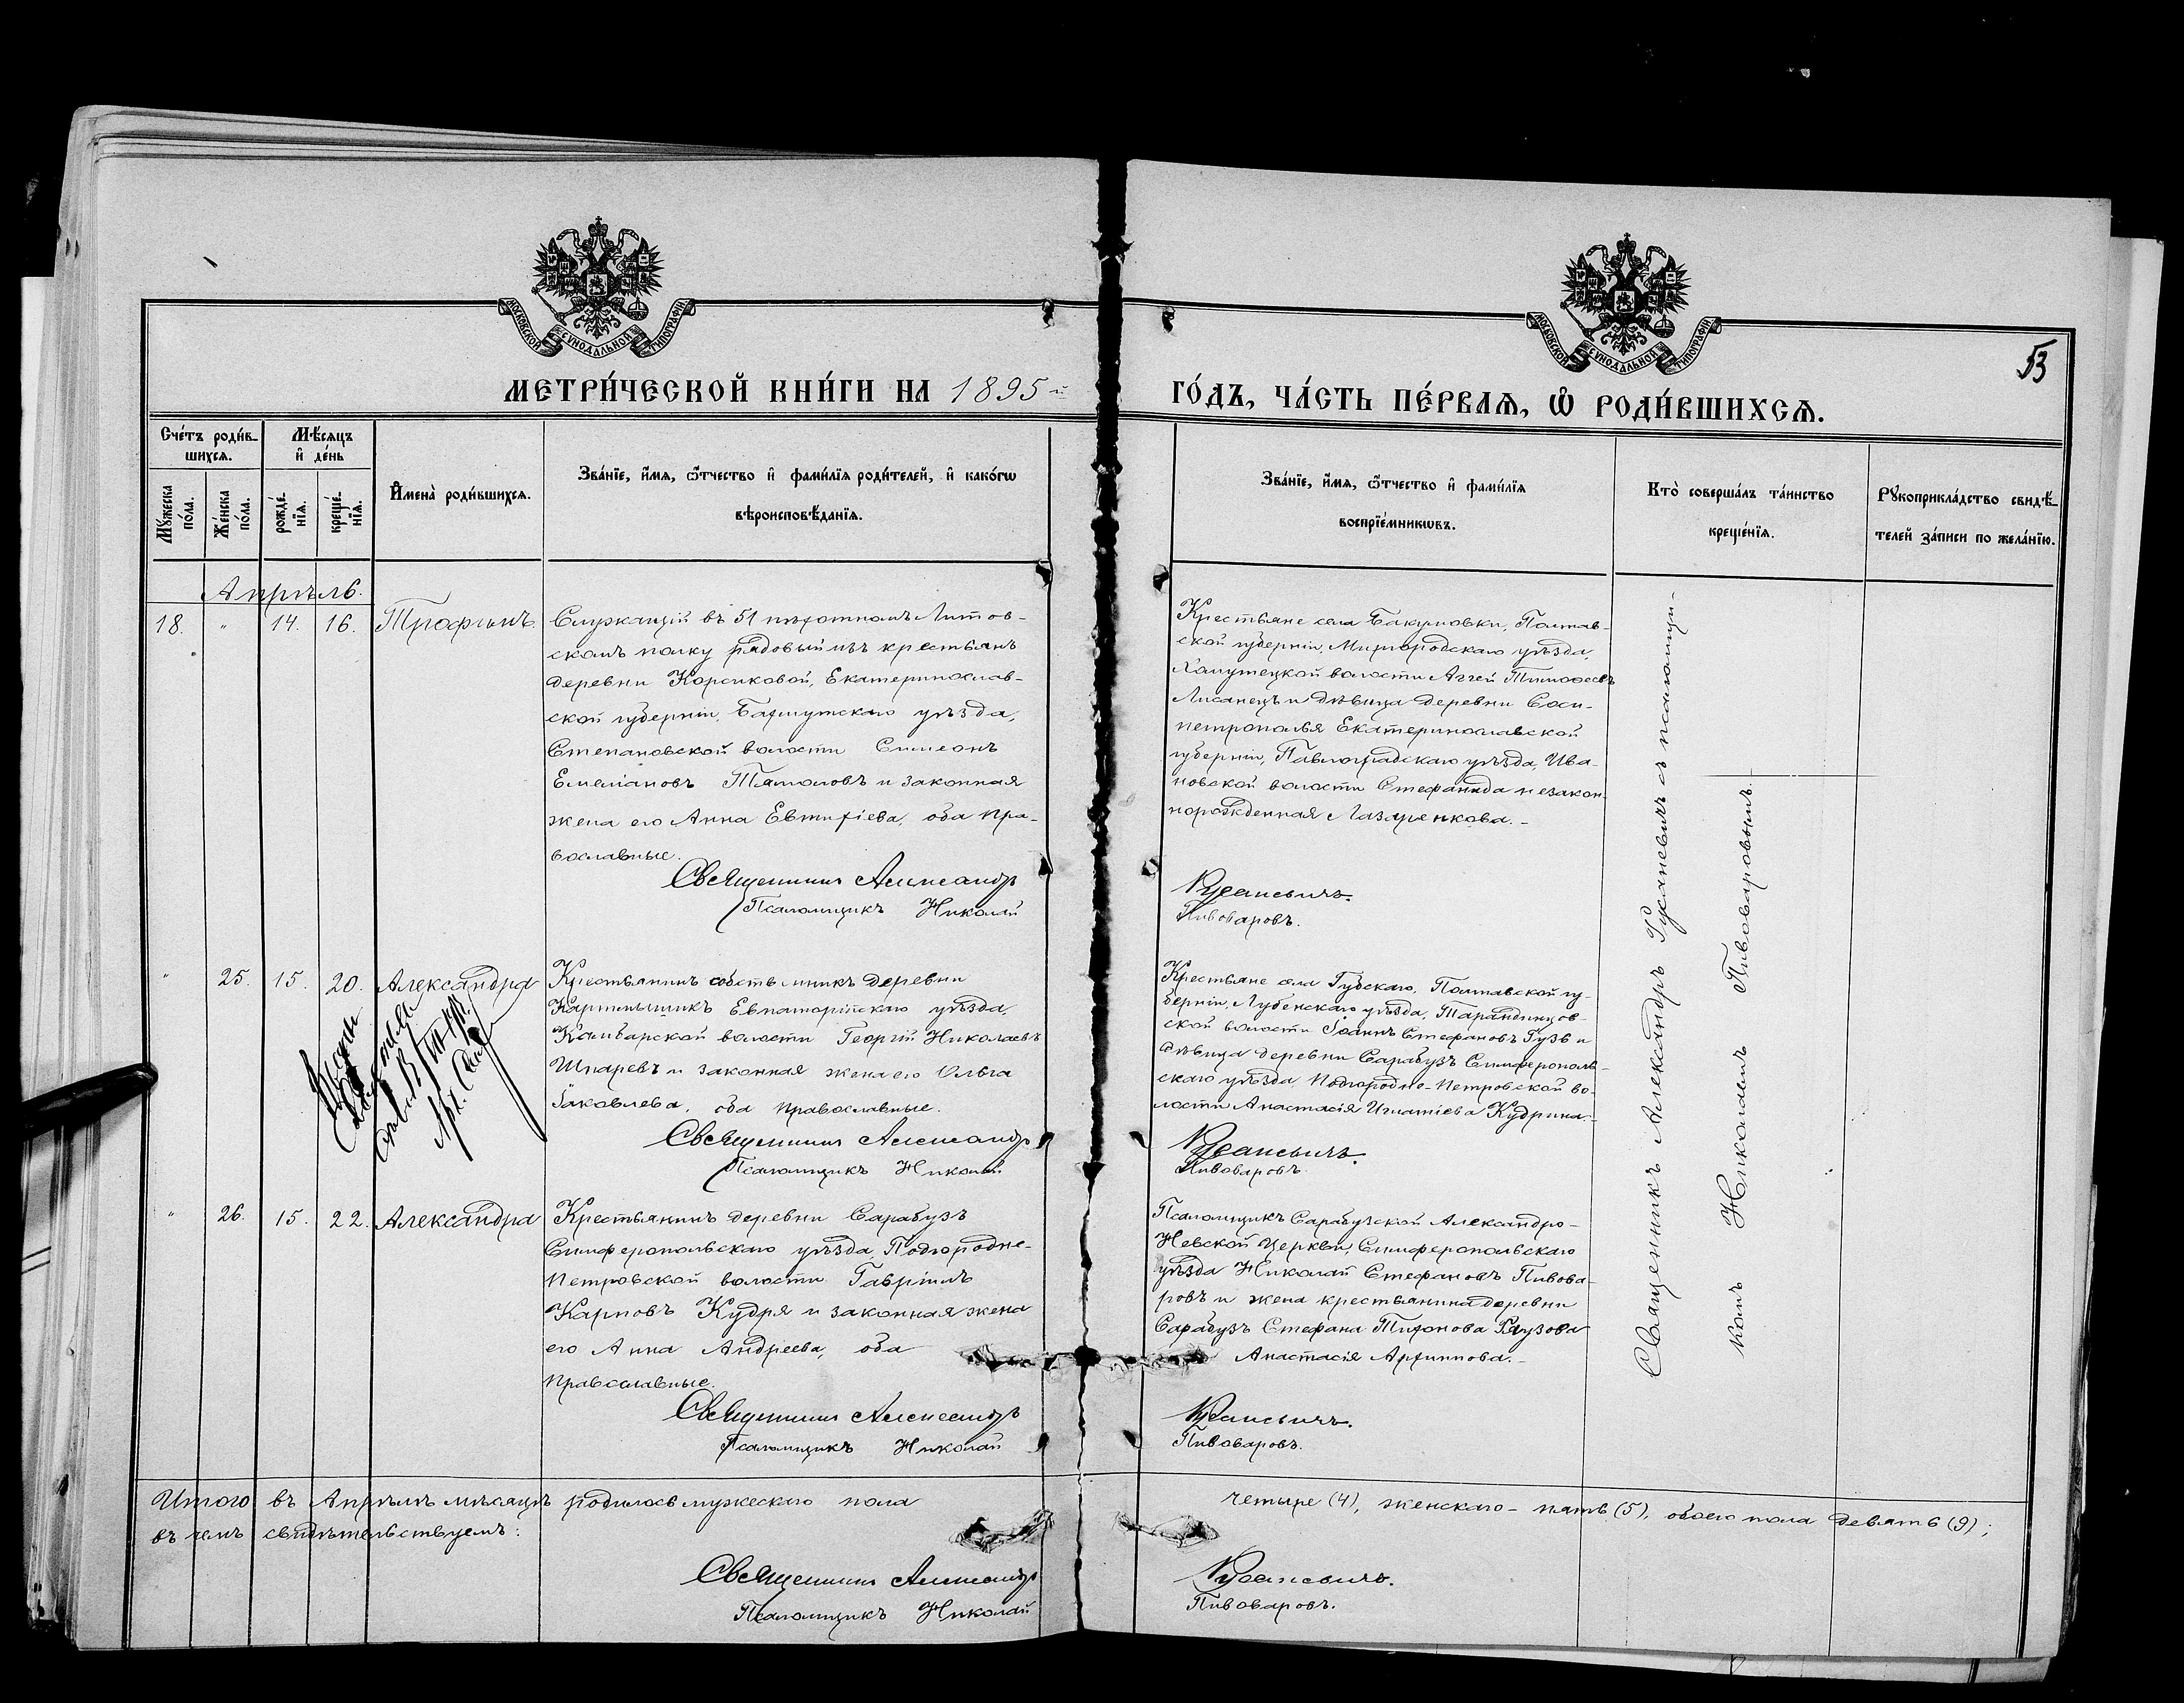 МОСКОВСКОЙ СѴНОДАЛЬНОЙ ТИПОГРАФІИ
МОСКОВСКОЙ СѴНОДАЛЬНОЙ ТИПОГРАФІИ
53
МЕТРИ́ЧЕСКОЙ КНИ́ГИ НА 1895-й ГО́ДЪ, ЧА́СТЬ ПЕ́РВАѦ, Ѡ҆ РОДИ́ВШИХСѦ.
Сче́тъ роди́в-
шихсѧ.
Мѣ́сѧцъ
и҆ де́нь
Мꙋ́жеска
по́ла.
Же́нска
по́ла.
рожде́-
нїѧ.
креще́-
нїѧ.
И҆мена̀ роди́вшихсѧ.
Зва́нїе, и҆́мѧ, ѻ҆́тчество и҆ фами́лїѧ роди́телей, и҆ како́гѡ
вѣроисповѣ́данїѧ.
Зва́нїе, и҆́мѧ, ѻ҆́тчество и҆ фами́лїѧ
воспрїе́мникѡвъ.
Кто̀ соверша́лъ та́инство
креще́нїѧ.
Рꙋкоприкла́дство свидѣ́-
телей за́писи по жела́нїю.
Апрѣль.
18. " 14. 16. Трофимъ.
Служащій въ 51 пѣхотномъ Литов-
скомъ полку рядовый изъ крестьянъ
деревни Корсиковой, Екатеринослав-
ской губерніи, Бахмутскаго уѣзда,
Степановской волости Симеонъ
Емеліановъ и законная
жена его Анна Евтихіева, оба пра-
вославные.
Священникъ Александр
Псаломщикъ Николай
Крестьяне села Бакумовки, Полтав-
ской губерніи, Миргородскаго уѣзда,
Хомутецкой волости Аггей Тимофеевъ
Лисанецъ и дѣвица деревни Соси-
петрополя Екатеринославской
губерніи, Павлоградскаго уѣзда, Ива-
новской волости Стефанида незакон-
норожденная Лазаренкова.-
Русаневичъ.
Пивоваровъ.
" 25. 15. 20. Александра
Крестьянинъ собственникъ деревни
Евпаторійскаго уѣзда,
Камбарской волости Георгій Николаевъ
Шпаревъ и законная жена его Ольга
Іаковлева, оба православные.
Священникъ Александр
Псаломщикъ Николай
Крестьяне села Губскаго, Полтавской гу-
берніи, Лубенскаго уѣзда, Тарандинцов-
ской волости Іоаннъ Стефановъ Гузь и
дѣвица деревни Сарабузъ Симферополь-
скаго уѣзда Подгородно-Петровской во-
лости Анастасія Игнатіева Кудрина.-
Русаневичъ.
Пивоваровъ.
" 26. 15. 22. Александра
Крестьянинъ деревни Сарабузъ
Симферопольскаго уѣзда, Подгородне-
Петровской волости Гавріилъ
Карповъ Кудря и законная жена
его Анна Андреева, оба
православные.
Священникъ Александръ
Псаломщикъ Николай
Псаломщикъ Сарабузской Александро-
Невской Церкви, Симферопольскаго
уѣзда Николай Стефановъ Пивова-
ровъ и жена крестьянина деревни
Сарабузъ Стефана Тихонова
Анастасія Архипова.-
Русаневичъ.
Пивоваровъ.
Священникъ Александръ Русаневичъ съ псаломщи-
комъ Николаемъ Пивоваровымъ.
Итого въ Апрѣлѣ мѣсяцѣ родилось мужескаго пола четыре (4), женскаго - пять (5), обоего пола девять (9);
въ чемъ свидѣтельствуемъ:
Священникъ Александр Русаневичъ.
Псаломщикъ Николай Пивоваровъ.